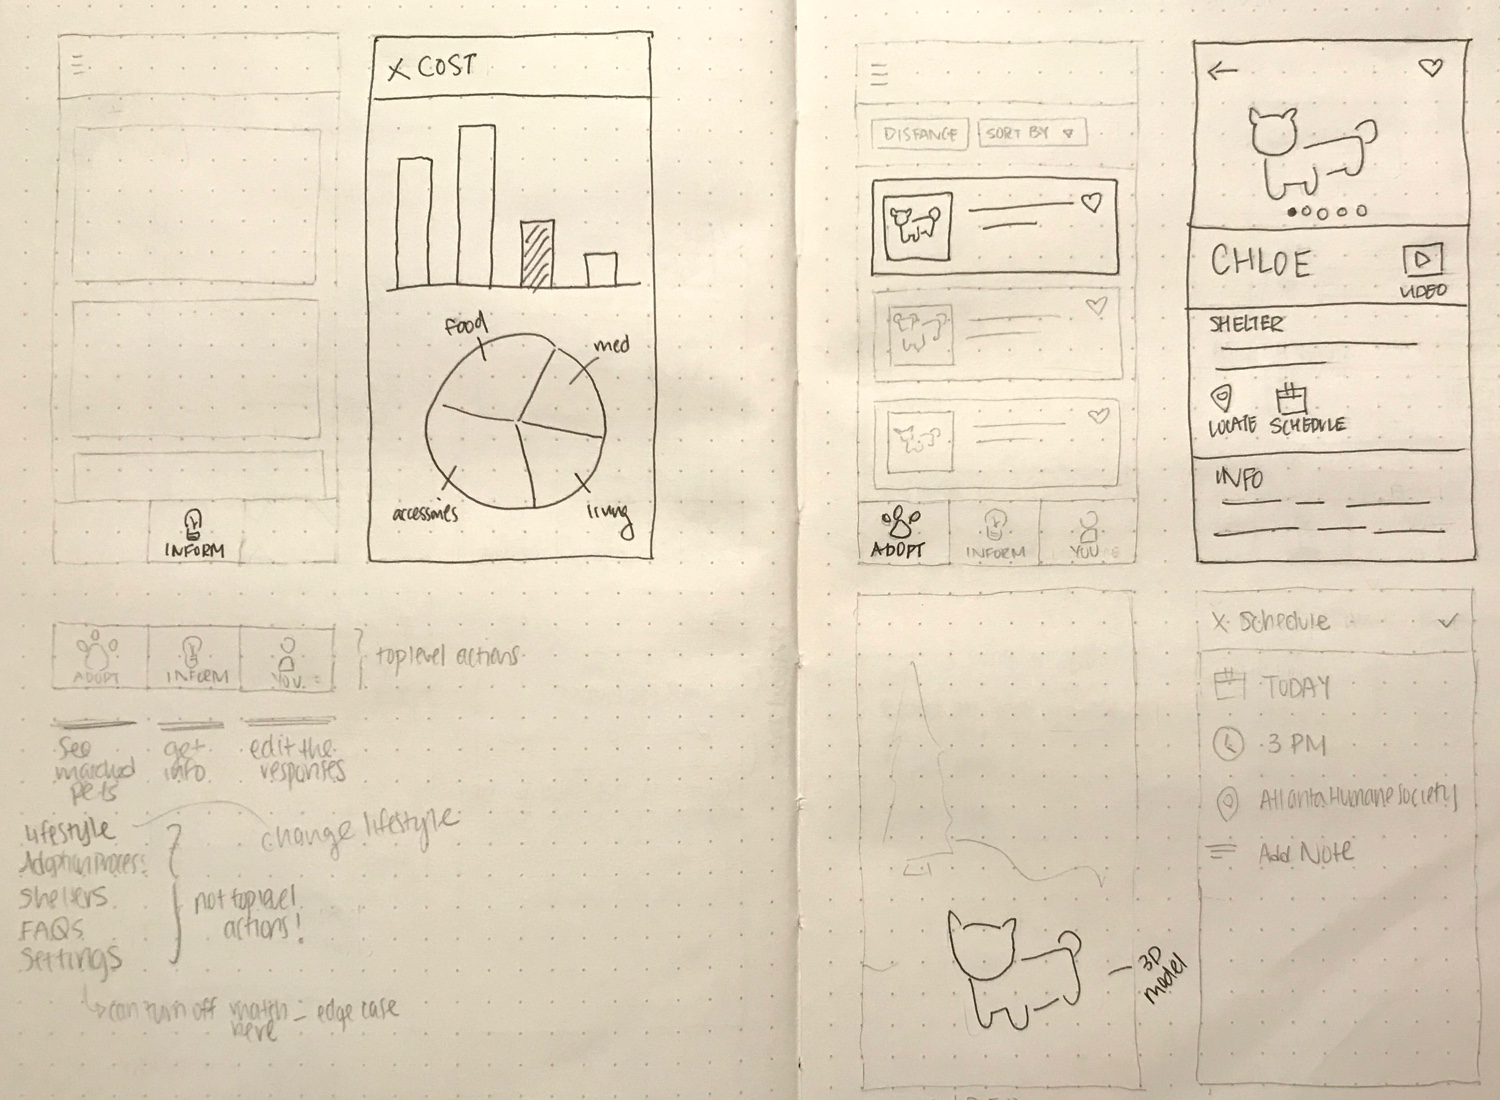 X COST
food
med
accessories
living
INFORM
ADOPT
INFORM
YOU
top level actions
see
matched
pets
get
info
edit the
responses
Lifestyle
change lifestyle
Adoption Process
Shelters
FAQs
Settings
not top level
actions!
can turn off match = edge case
here
DISTANCE
SORT BY
ADOPT
INFORM
YOU
CHLOE
VIDEO
SHELTER
LOCATE SCHEDULE
INFO
3D
model
X Schedule
TODAY
3 PM
Atlanta Humane Society
Add Note